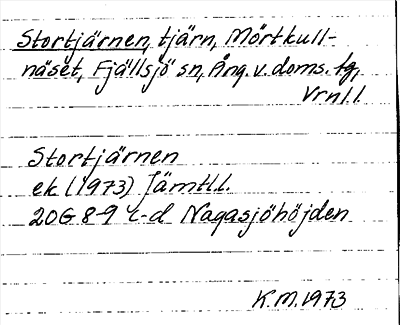 Stortjärnen, tjärn, Mörtkull-
näset, Fjällsjö sn, Ång. v. doms. tg,
Vrnl l.
Stortjärnen
ek (1973) Jämtl.l.
20G 8-9 c-d Nagasjöhöjden
K.M. 1973